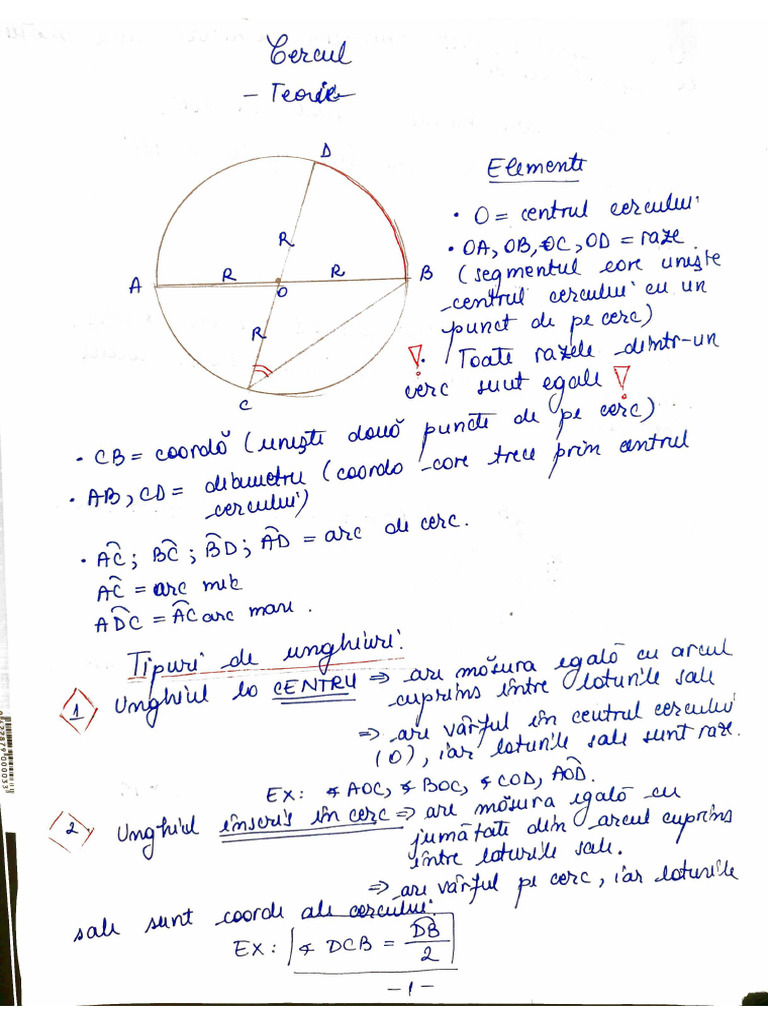 Cercul
- Teorie
D
A
R
R
R
R
O
B
C
Elemente
• O = centrul cercului
• OA, OB, OC, OD = raze
(segmentul care unește
centrul cercului cu un
punct de pe cerc)
• Toate razele dintr-un
cerc sunt egale !
• CB = coardă (unește două puncte de pe cerc)
• AB, CD = diametru (coarda care trece prin centrul
cercului)
• A͡C; B͡C; B͡D; A͡D = arc de cerc.
A͡C = arc mic
A͡DC = A͡C arc mare.
Tipuri de unghiuri:
1 Unghiul la CENTRU => are măsura egală cu arcul
cuprins între laturile sale
=> are vârful în centrul cercului
(O), iar laturile sale sunt raze.
Ex: ∢ AOC, ∢ BOC, ∢ COD, A͡OD.
2 Unghiul înscris în cerc => are măsura egală cu
jumătate din arcul cuprins
între laturile sale.
=> are vârful pe cerc, iar laturile
sale sunt coarde ale cercului.
Ex: ∢ DCB = D͡B/2
-1-
9427879000033